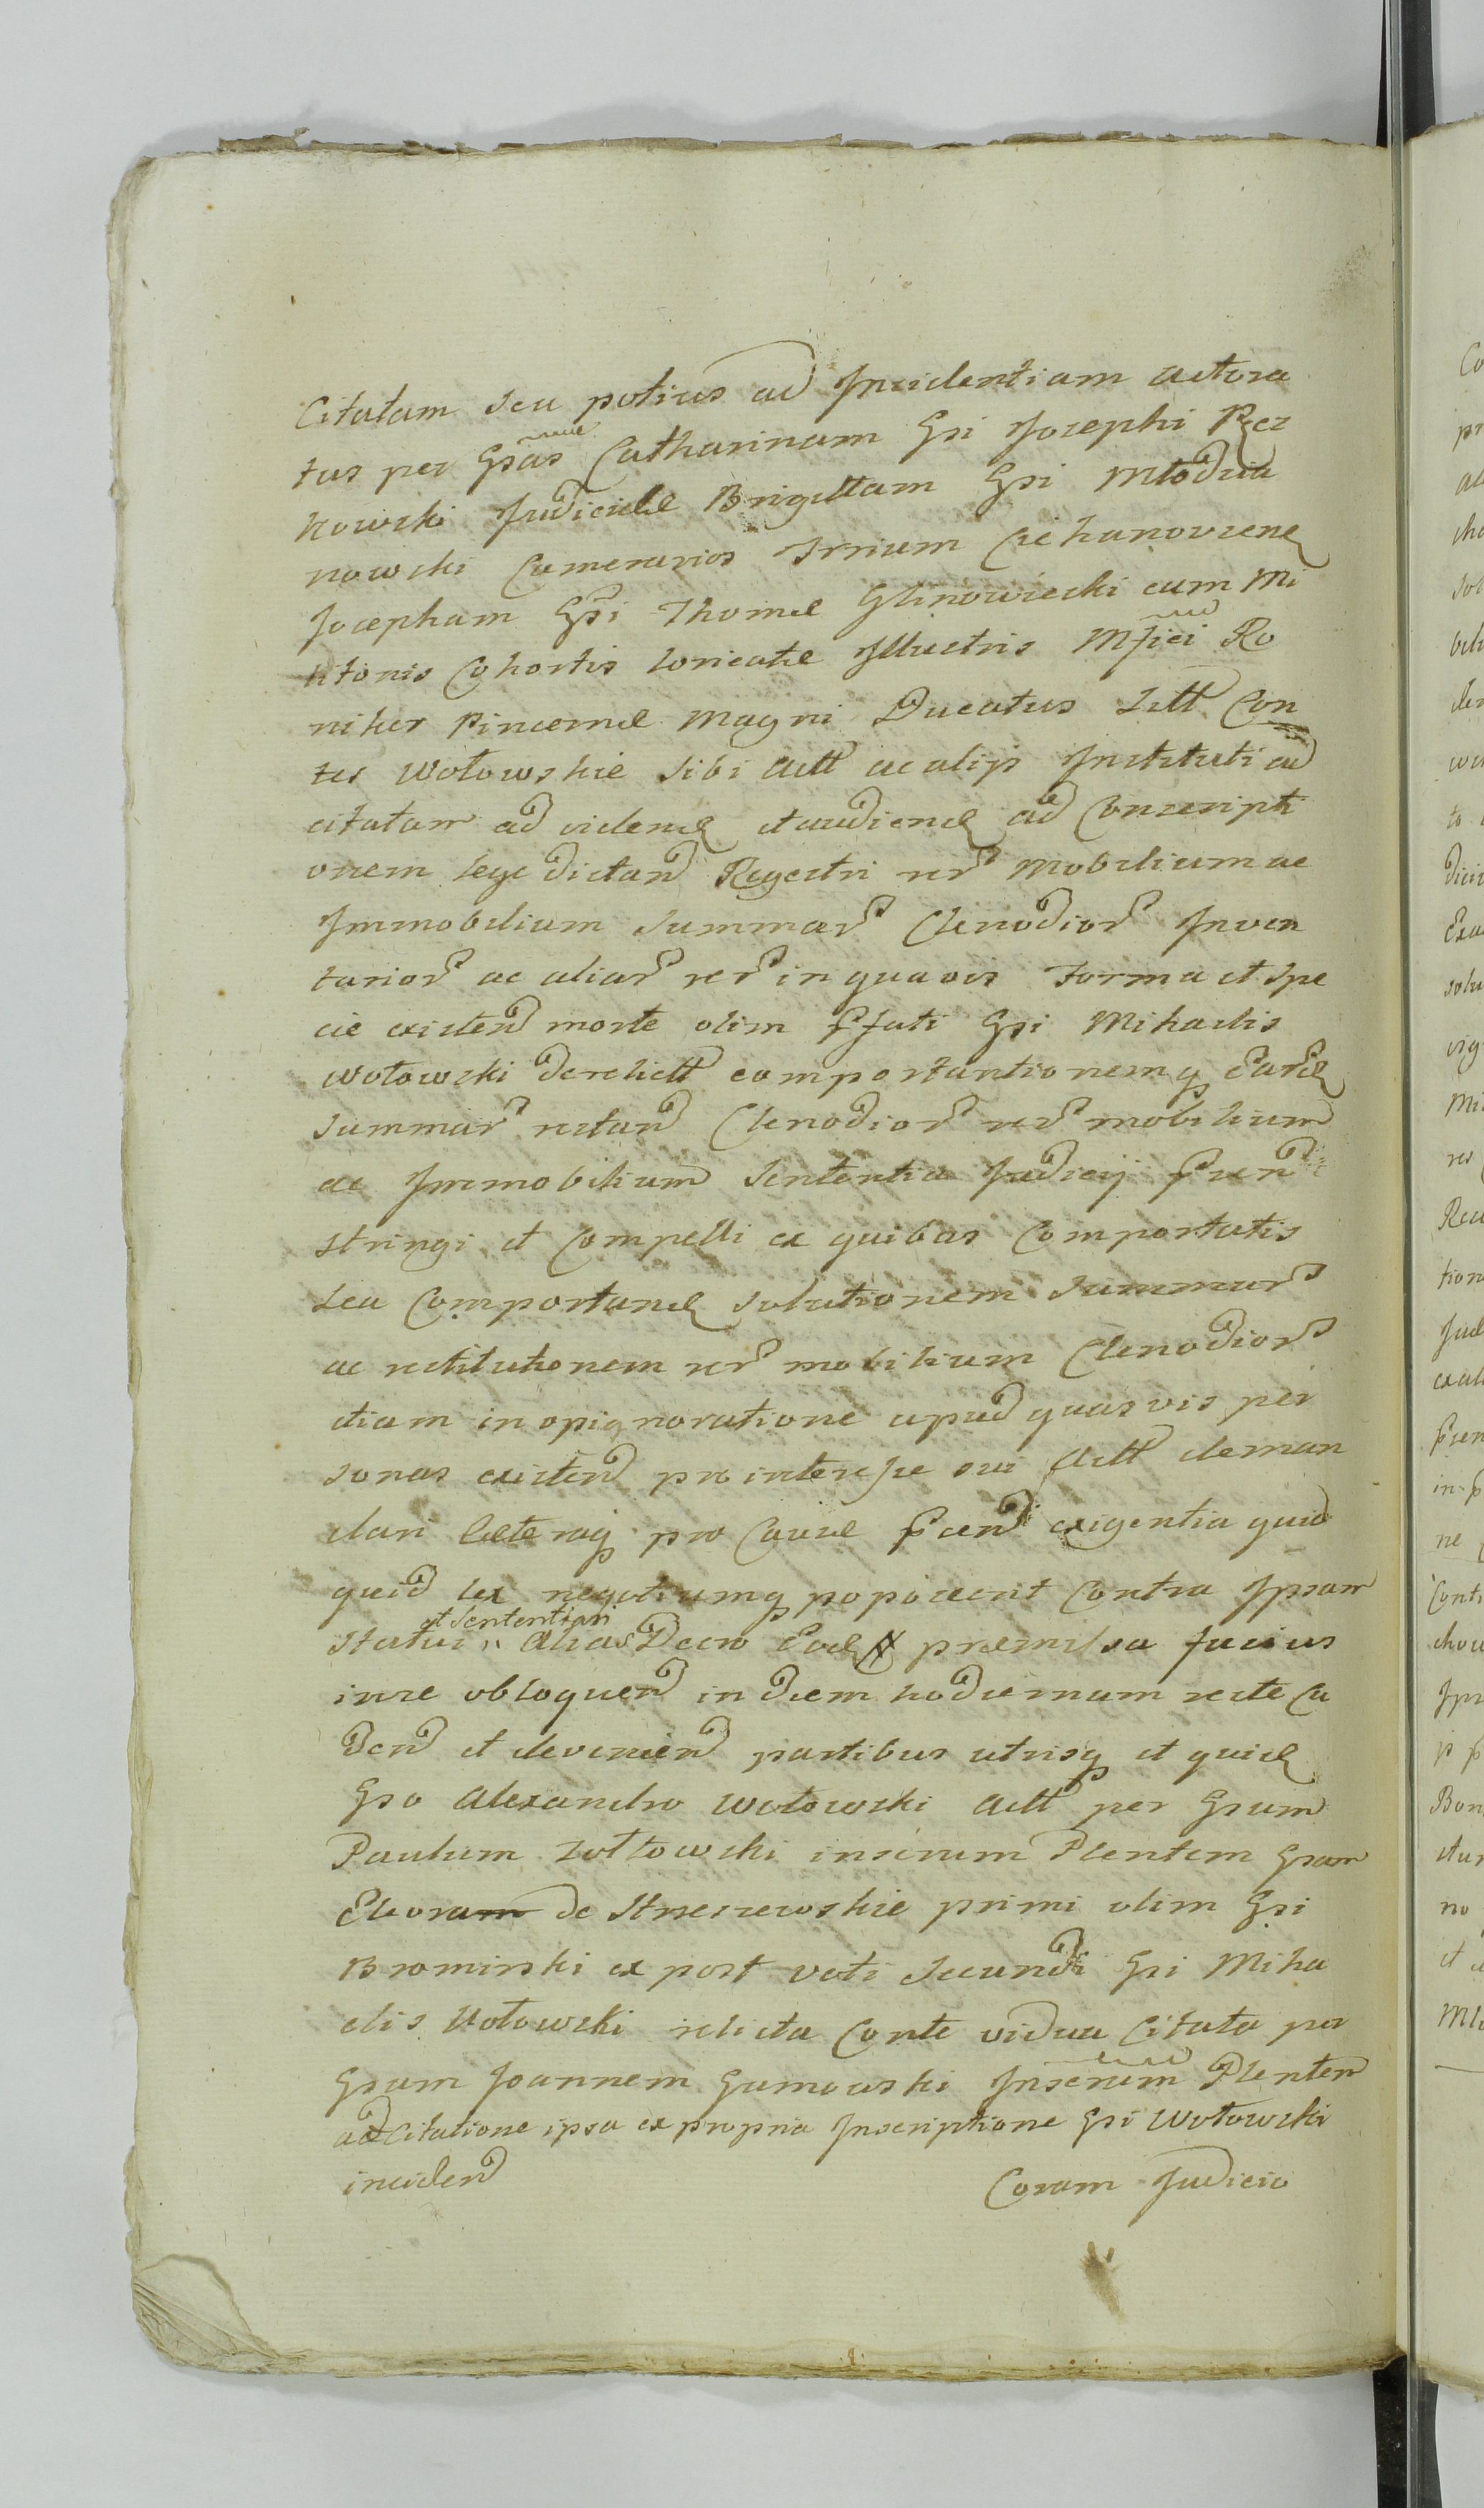 Citatam seu potius ad Incidentiam actora
tus per Gsas Catharinam Gsi Josephi Rez
kowski Judiciale Brigittam Gsi Młodzia
nowski Camerarios Trrium Ciehanoviene
Josepham Gsi Thomæ Glinowiecki eum Mi
litonis Cohortis loricatæ Illustris Mfici Ro
niker Pincernæ Magni Ducatus Litt Con
tes Wołowskie sibi Actt ac alijs Instituti ad
citatam ad videnđ et audienđ ad Conscripti
onem lege dictanđ Regestri rer Mobilium ac
Immobilium Summar Clenodior Inven
tarior ac aliar rer in quavis Forma et Spe
cie existenđ morte olim pfati Gsi Mihaelis
Wołowski derelictt comportantionemq Eard
Summar restanđ Clenodior rer mobilium
ac Immobilium Sententia Judicij psen
stringi et Compelli ex quibus Comportatis
seu Comportand solutionem Summar
ac restitutionem rer mobilium Clenodior
etiam in opignoratione apud quasvis per
sonas existenđ pro interesse sui Actt deman
dari Cæteraq pro Causæ psen exigentia quid
quid lex negotiumq poposcerit Contra Ipsam
et Sententiari
Statui " Alias Decro Eod præmissa facius
inre obloquenđ in diem hodiernum recte Ca
denđ et devenienđ partibus utrisq et quid
Gso Alexandro Wołowski Actt per Gsum
Paulum Zołtowski inserum Plentem Gsam
Eleoram de Strzeszewoskie primi olim Gsi
Bromirski ex post voti Secundi Gsi Miha
elis Wołowski relicta Conte vidua Citata per
Gsum Joannem Gumowski Inserum Plentem
ad Citatione ipsa ex propria Inscriptione Gsi Wołowski
incidenđ
Coram Judicio